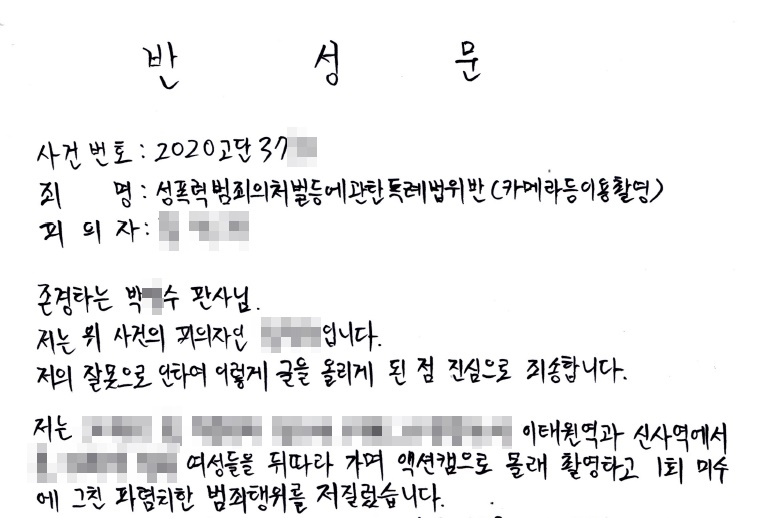 반 성 문
사건번호 : 2020고단37
죄 명 : 성폭력범죄의처벌등에관한특례법위반(카메라등이용촬영)
피 의 자 :
존경하는 박 수 판사님.
저는 위 사건의 피의자인 입니다.
저의 잘못으로 인하여 이렇게 글을 올리게 된 점 진심으로 죄송합니다.
저는 이태원역과 신사역에서
여성들을 뒤따라 가며 액션캠으로 몰래 촬영하고 1회 미수
에 그친 파렴치한 범죄행위를 저질렀습니다.